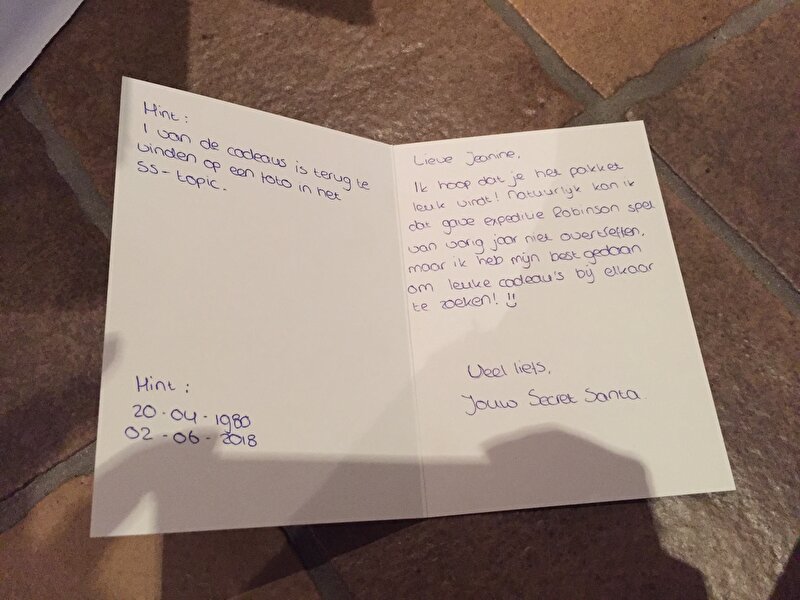 Hint:
1 van de cadeaus is terug te
vinden op een foto in het
SS-topic.
Hint:
20-04-1980
02-06-2018
Lieve Jeanine,
Ik hoop dat je het pakket
leuk vindt! Natuurlijk kan ik
dat gave expeditie Robinson spel
van vorig jaar niet overtreffen,
maar ik heb mijn best gedaan
om leuke cadeau's bij elkaar
te zoeken! :)
Veel liefs,
Jouw Secret Santa.